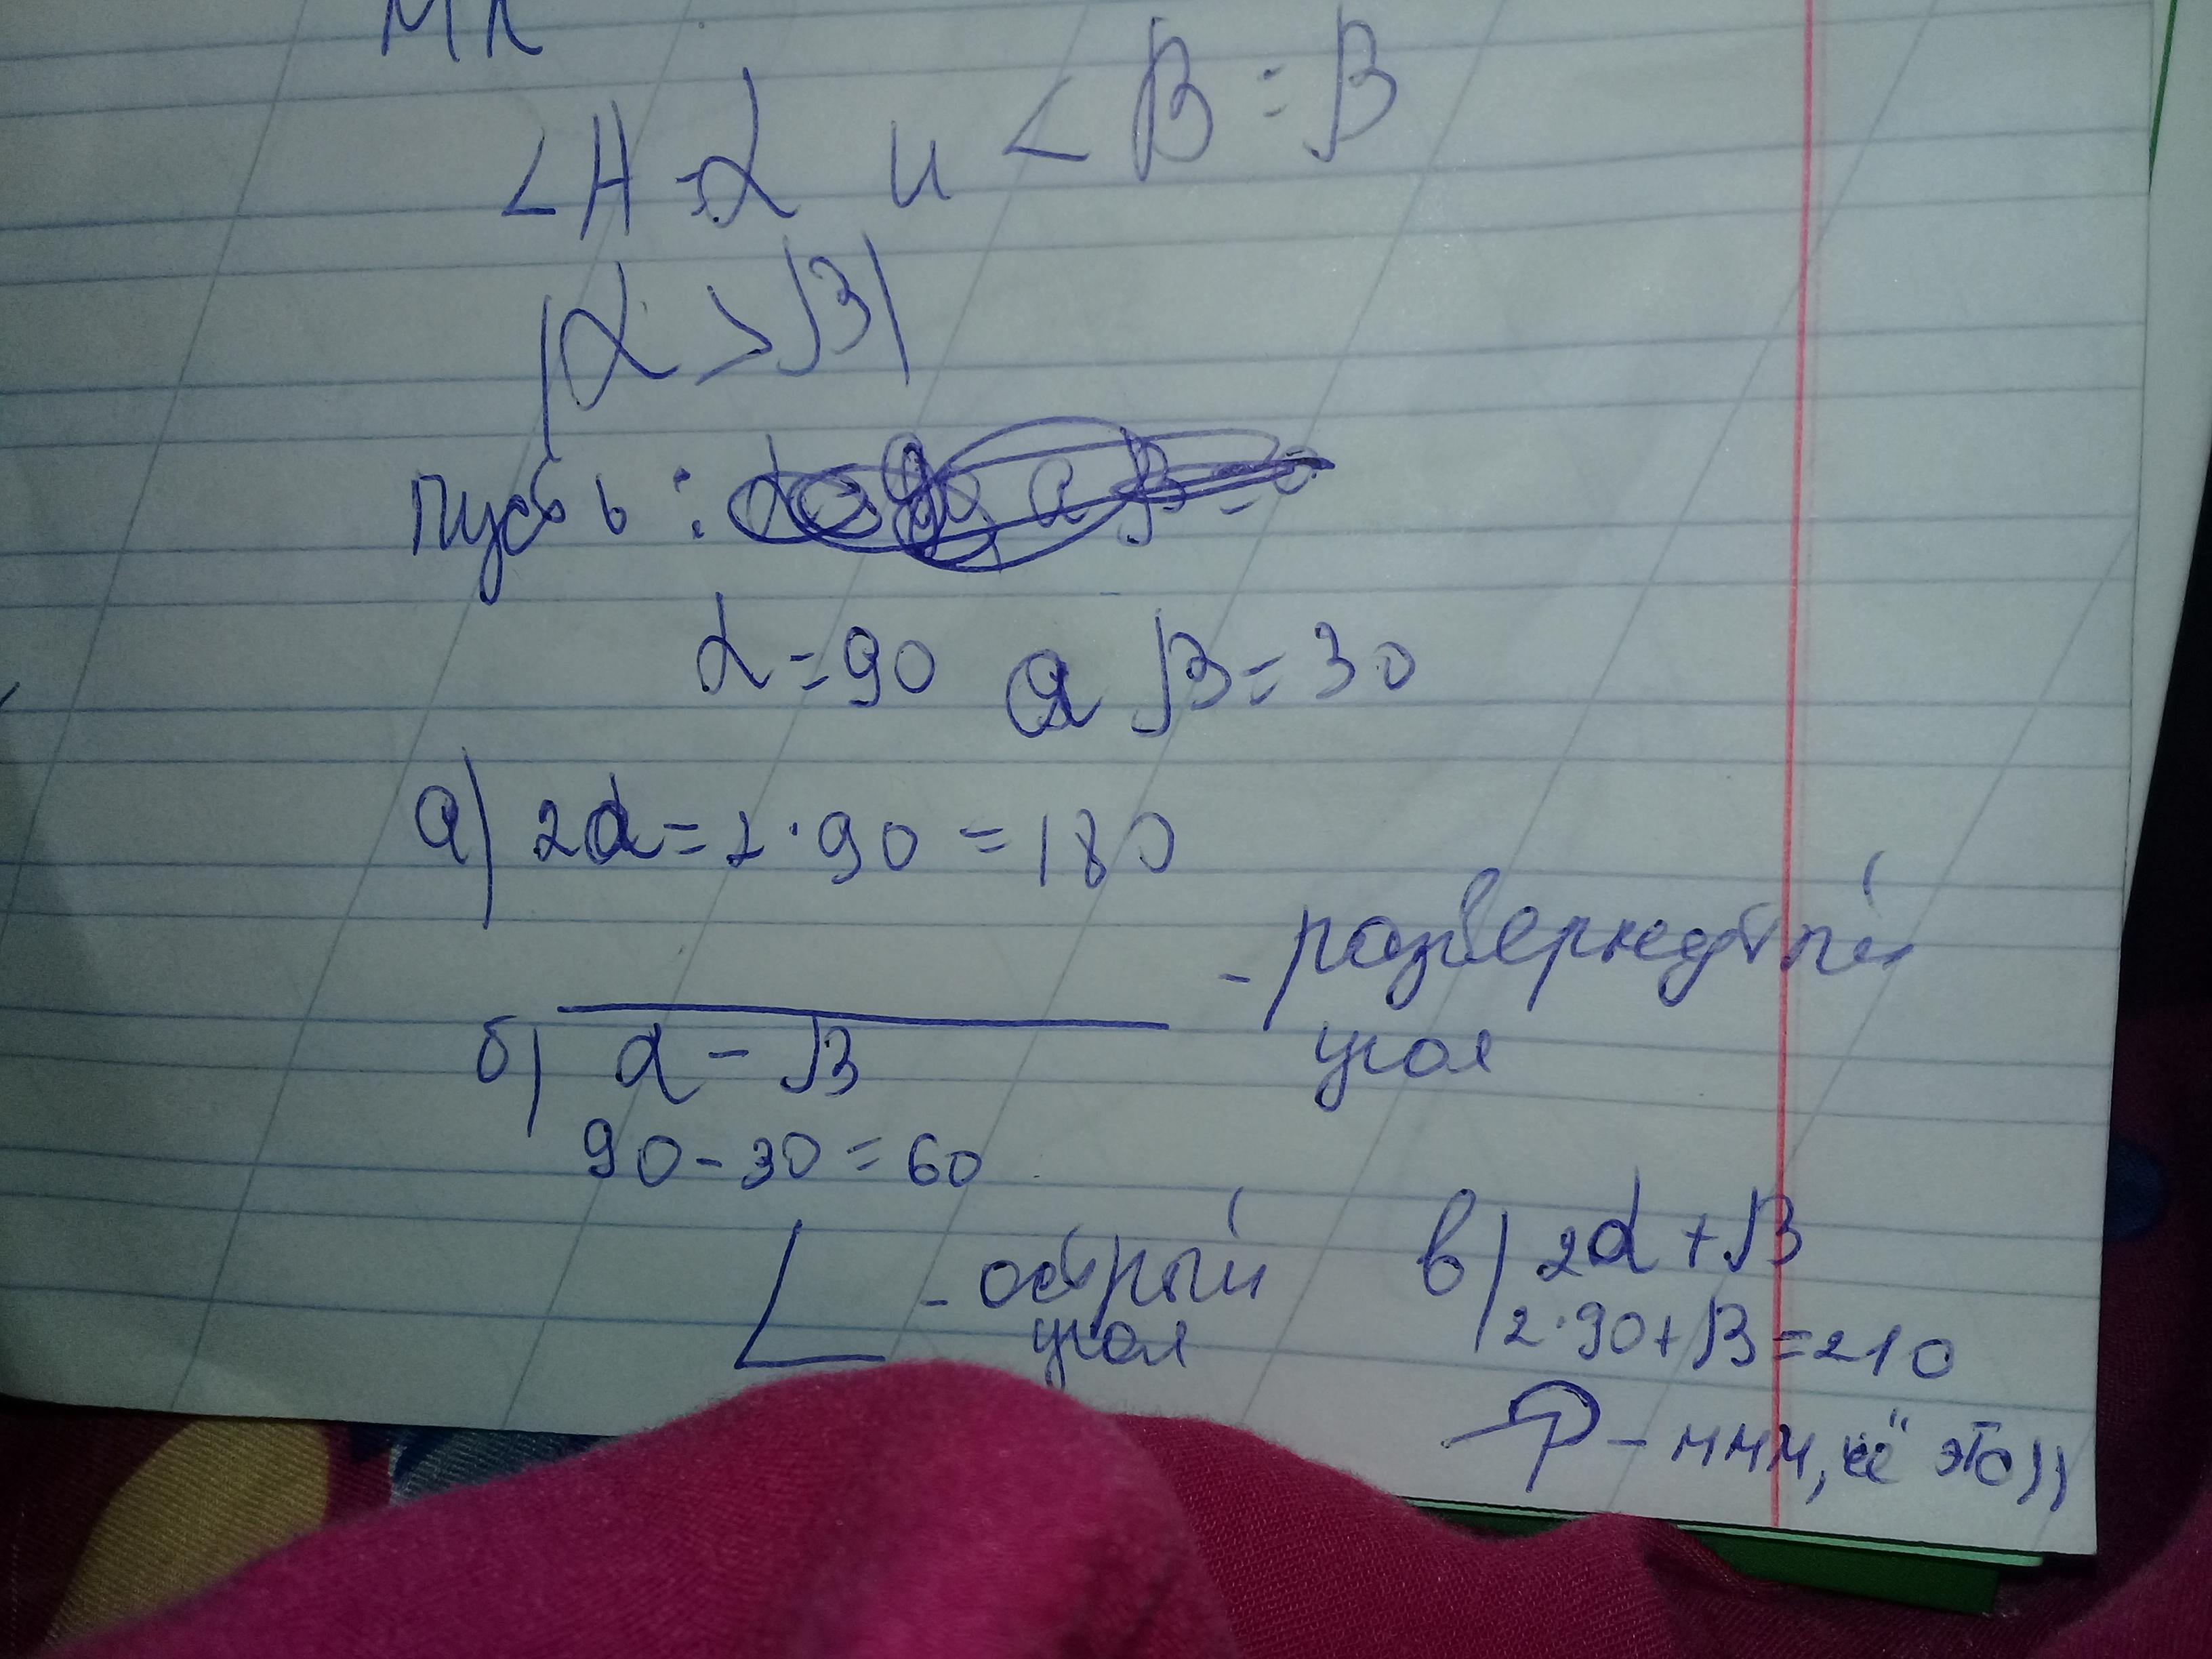 ∠A = α и ∠B = β
|α > β|
пусть:
α = 90 а β = 30
а) 2α = 2·90 = 180
- развернутый
угол
б) α - β
90 - 30 = 60
- острый
угол
в) 2α + β
2·90 + β = 210
- ммм, чё это))